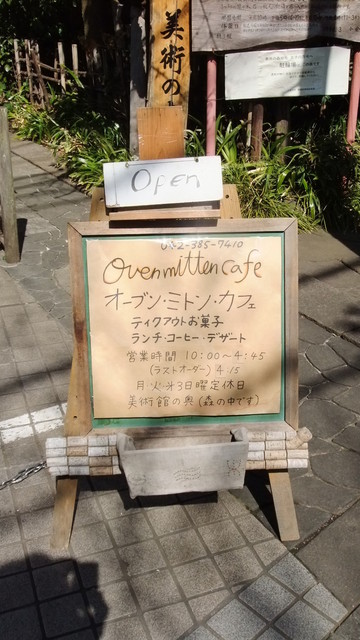 美術の
Open
042-385-7410
Ovenmitten Cafe
オーブン・ミトン・カフェ
テイクアウトお菓子
ランチ・コーヒー・デザート
営業時間 10:00〜4:45
(ラストオーダー) 4:15
月・火・第3日曜定休日
美術館の奥(森の中です)